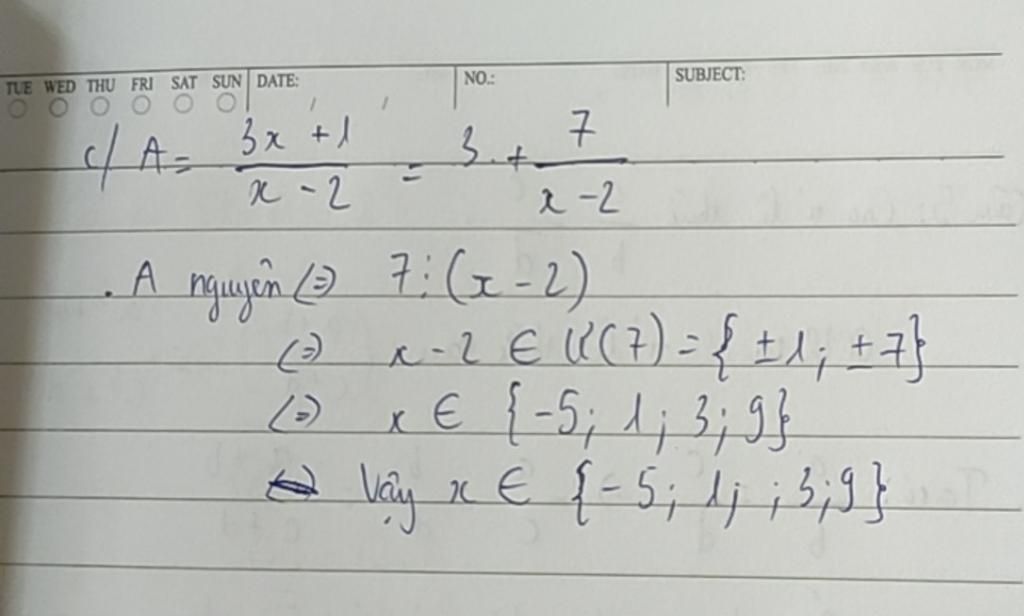 TUE WED THU FRI SAT SUN DATE: / / NO.: SUBJECT:
c/ A = \frac{3x + 1}{x - 2} = 3 + \frac{7}{x - 2}
. A nguyên (=) 7 ⋮ (x - 2)
(=) x - 2 ∈ Ư(7) = {±1; ±7}
(=) x ∈ {-5; 1; 3; 9}
Vậy x ∈ {-5; 1; ; 3; 9}